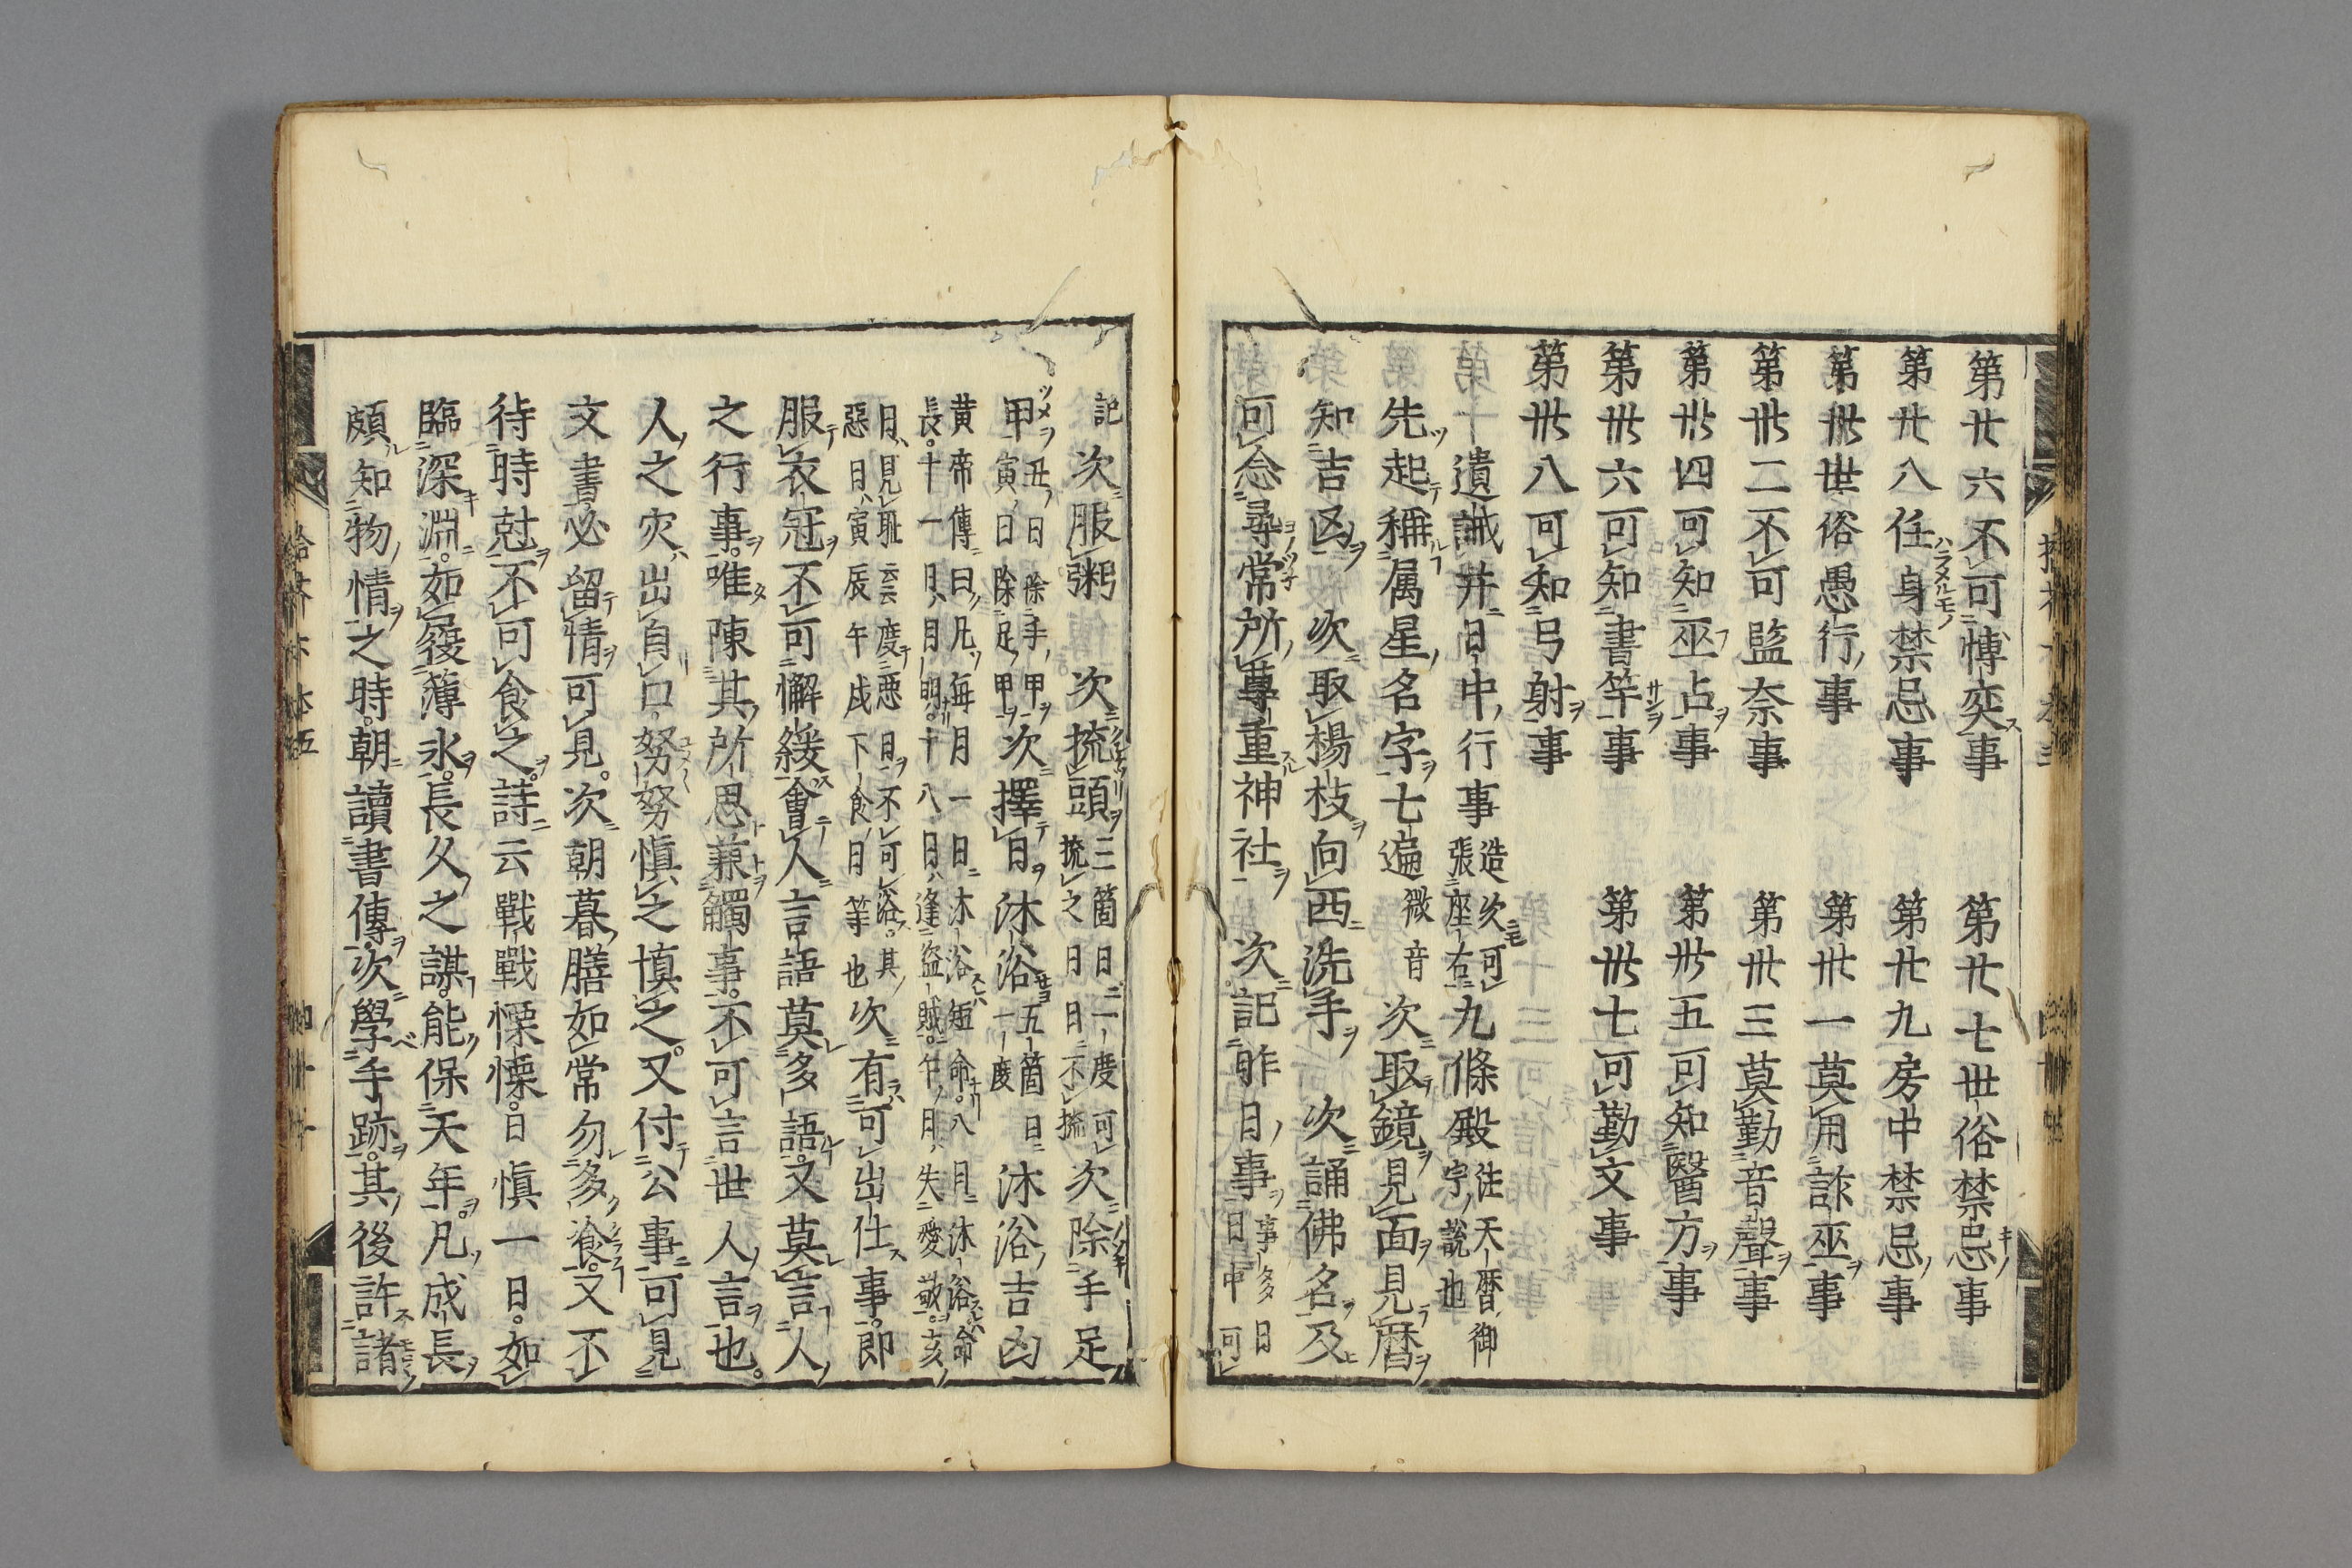 第廿六不可愽奕事 第廿七世俗禁忌事
第廿八任身禁忌事 第廿九房中禁忌事
第卅世俗愚行事 第卅一莫用詐巫事
第卅二不可監奈事 第卅三莫勤音聲事
第卅四可知巫占事 第卅五可知醫方事
第卅六可知書竿事 第卅七可勤文事
第卅八可知弓射事
遺誡并日中行事 造次可張座右 九條殿 天暦御 說也
先起稱属星名字七遍 微音 次取鏡見面見暦
知吉凶 次取楊枝向西洗手 次誦佛名及
可念尋常所尊重神社 次記昨日事 事多日日中可
記次服粥 次梳頭 三箇日一度可梳之日日不梳 次除手足
甲 丑日除手甲寅日除足甲 次擇日沐浴 五箇日一度 沐浴吉凶
黄帝傳曰凡每月一日沐浴短命八月沐浴命
長十一月月明十八日逢盜賊午月失愛敬亥
日見耻云云度惡日不可浴其
惡日寅辰午戌下食日等也 次有可出仕事即
服衣冠不可懈緩會人言語莫多語又莫言人
之行事唯陳其所思兼觸事不可言世人言也
人之灾出自口努努愼之慎之又付公事可見
文書必留情可見次朝暮膳如常勿多飡又不
待時尅不可食之詩云戰戰慄慄日愼一日如
臨深淵如履薄氷長久之謀能保天年凡成長
頗知物情之時朝讀書傳次學手跡其後許諸